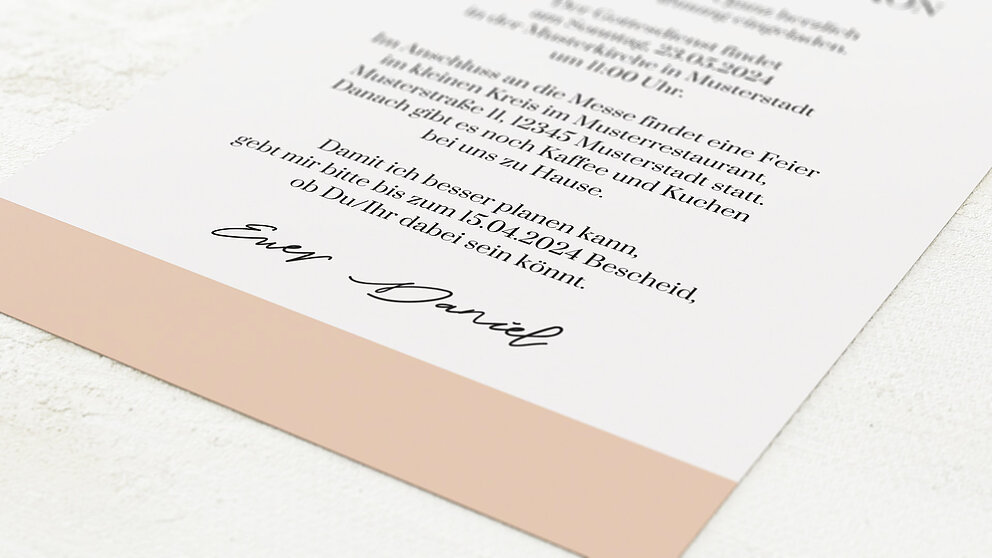 ION
ganz herzlich
eingeladen.
Der Gottesdienst findet
am Sonntag, 23.03.2024
in der Musterkirche in Musterstadt
um 11:00 Uhr.
Im Anschluss an die Messe findet eine Feier
im kleinen Kreis im Musterrestaurant,
Musterstraße 11, 12345 Musterstadt statt.
Danach gibt es noch Kaffee und Kuchen
bei uns zu Hause.
Damit ich besser planen kann,
gebt mir bitte bis zum 15.04.2024 Bescheid,
ob Du/Ihr dabei sein könnt.
Euer Daniel